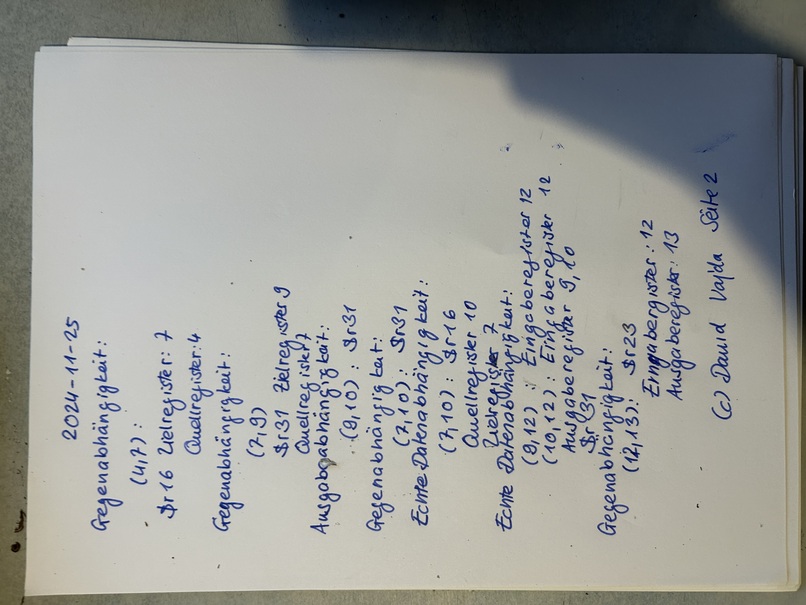 2024-11-25
Gegenabhängigkeit:
(4,7):
$r16 Zielregister: 7
Quellregister: 4
Gegenabhängigkeit:
(7,9)
$r31 Zielregister 9
Quellregister 7
Ausgabeabhängigkeit:
(9,10): $r31
Gegenabhängigkeit:
(7,10): $r31
Echte Datenabhängigkeit:
(7,10): $r16
Quellregister 10
Zielregister 7
Echte Datenabhängigkeit:
(9,12): Eingaberegister 12
(10,12): Eingaberegister 12
Ausgaberegister 9,10
$r31
Gegenabhängigkeit:
(12,13): $r23
Eingabergister: 12
Ausgaberegister: 13
(c) David Vajda Seite 2